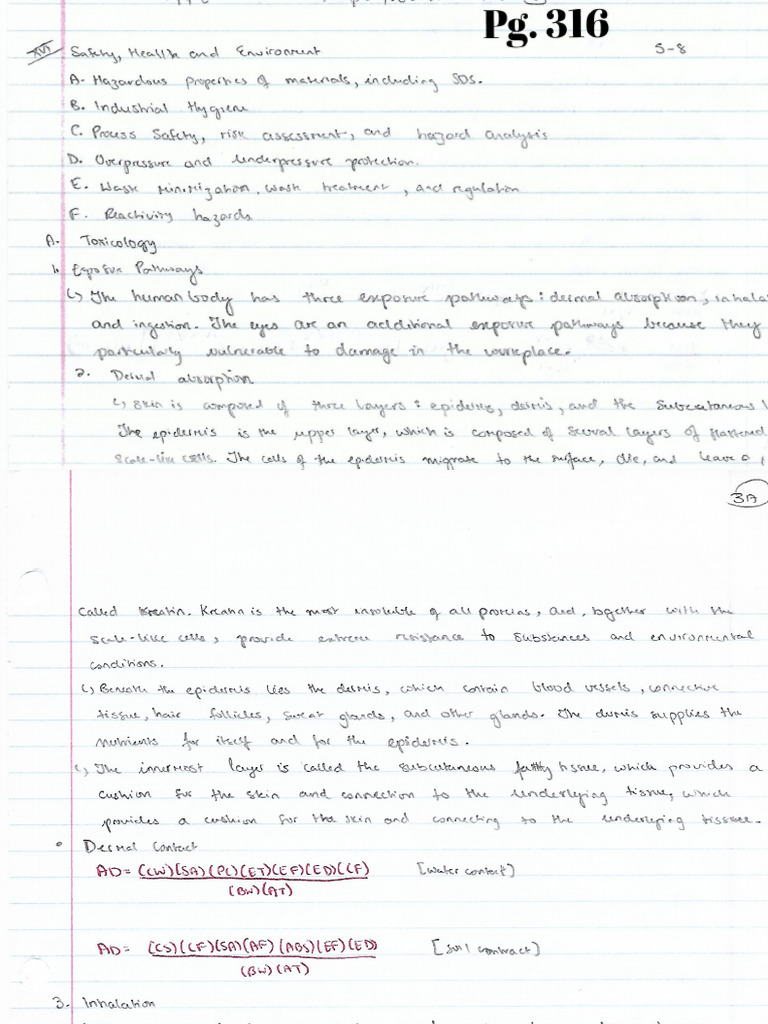 Pg. 316
XVI Safety, Health and Environment 5-8
A. Hazardous properties of materials, including SDS.
B. Industrial Hygiene
C. Process Safety, risk assessment, and hazard analysis
D. Overpressure and Underpressure protection.
E. Waste Minimization, waste treatment, and regulation
F. Reactivity hazards
A. Toxicology
1. Exposure Pathways
↳ The human body has three exposure pathways: dermal absorption, inhala
and ingestion. The eyes are an additional exposure pathways because they
particularly vulnerable to damage in the workplace.
2. Dermal absorption
↳ Skin is composed of three layers: epidermis, dermis, and the subcutaneous l
The epidermis is the upper layer, which is composed of several layers of flattened
scale-like cells. The cells of the epidermis migrate to the surface, die, and leave a
3A
called Keratin. Keratin is the most insoluble of all proteins, and, together with the
scale-like cells, provide extreme resistance to substances and environmental
conditions.
↳ Beneath the epidermis lies the dermis, which contain blood vessels, connective
tissue, hair follicles, sweat glands, and other glands. The dermis supplies the
nutrients for itself and for the epidermis.
↳ The innermost layer is called the subcutaneous fatty tissue, which provides a
cushion for the skin and connection to the underlying tissue, which
provides a cushion for the skin and connecting to the underlying tissue.
• Dermal Contact
AD = (CW)(SA)(PC)(ET)(EF)(ED)(CF) [water contact]
(BW)(AT)
AD = (CS)(CF)(SA)(AF)(ABS)(EF)(ED) [soil contract]
(BW)(AT)
3. Inhalation